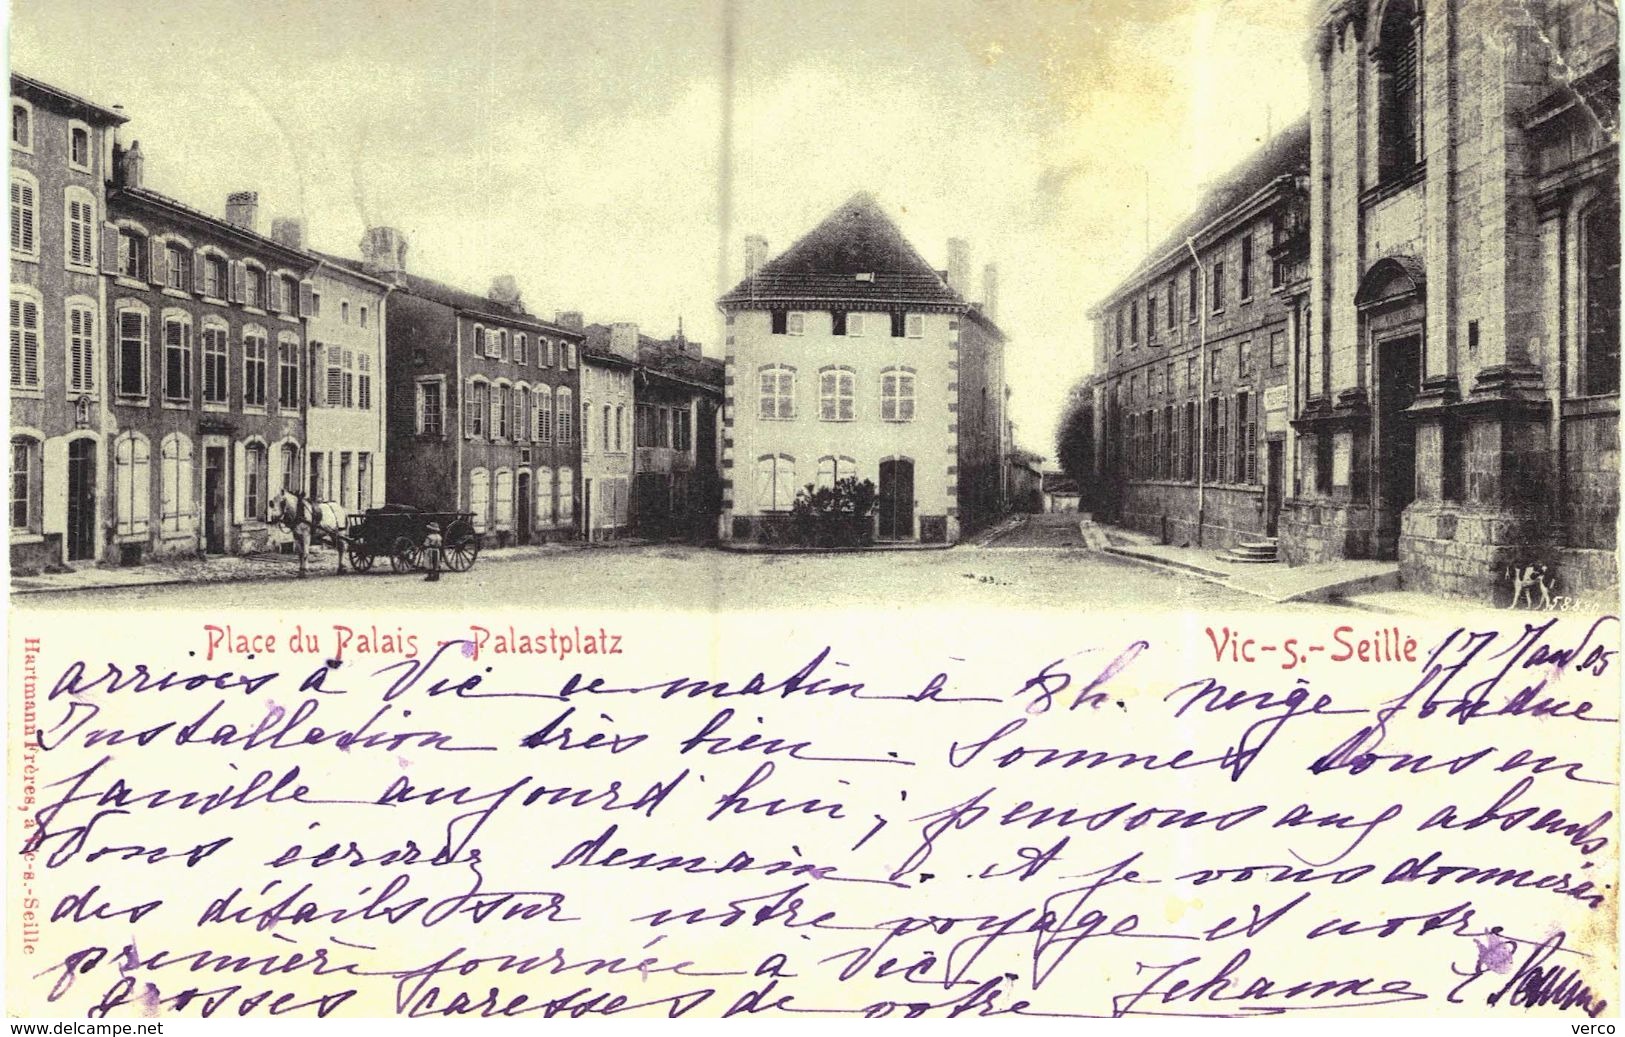 58830
Place du Palais - Palastplatz
Vic-s.-Seille
17 Janv. 05
Hartmann Frères, à Vic-s.-Seille
arrivés à Vic ce matin à 8h. Neige fondue
Installation très bien. Sommes tous en
famille aujourd'hui ; pensons aux absents.
Vous écrirez demain. Et je vous donnerai
des détails sur notre voyage et notre
première journée à Vic
grosses caresses de votre Jehanne
verco
www.delcampe.net